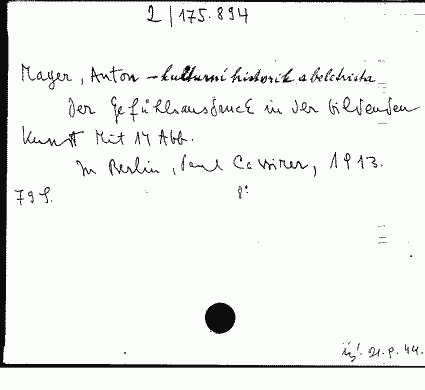 2/175.894
Mayer, Anton – kulturní historik a beletrista
Der Gefühlsausdruck in der bildenden
Kunst Mit 14 Abb.
In Berlin, Paul Cassirer, 1913.
79 S. 8°
21.9.44.